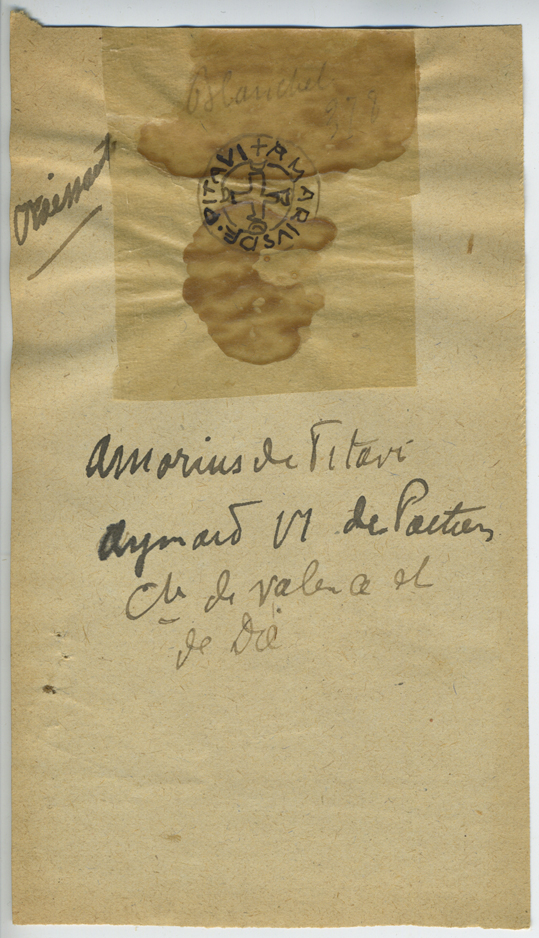 Blanchet
378
+ AMARIUS DE · PITAVI
Amorius de Pitavi
Aymard VI de Poitiers
Cte de Valence et
de Die